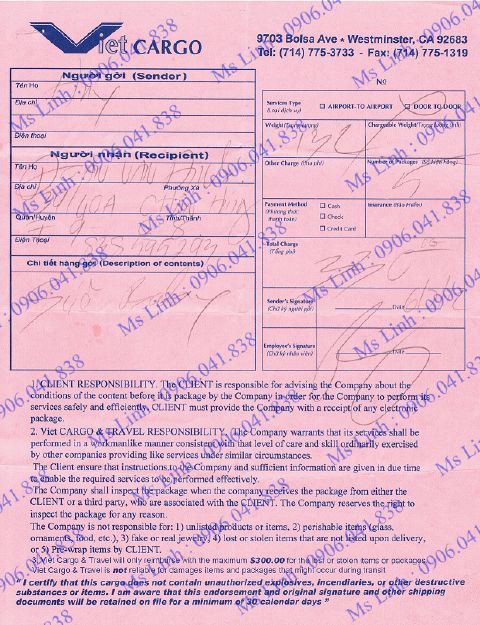 Viet CARGO
9703 Bolsa Ave • Westminster, CA 92683
Tel: (714) 775-3733 - Fax: (714) 775-1319
Người gởi (Sender)
Tên Họ
Địa chỉ
Điện thoại
Người nhận (Recipient)
Tên Họ
Địa chỉ Phường Xã
Quận/Huyện Tỉnh/Thành
Điện Thoại
Chi tiết hàng gởi (Description of contents)
No
Services Type
(Loại dịch vụ)
AIRPORT-TO AIRPORT DOOR TO DOOR
Weight (Trọng lượng) Chargeable Weight (Trọng lượng tính)
Other Charge (Thu phí) Number of Packages (Số kiện hàng)
5
Payment Method
(Phương thức thanh toán)
Cash
Check
Credit Card
Insurance (Bảo Hiểm)
Total Charge
(Tổng phí)
Sender's Signature
(Chữ ký người gởi)
Date
Employee's Signature
(Chữ ký nhân viên)
Date
1. CLIENT RESPONSIBILITY. The CLIENT is responsible for advising the Company about the
conditions of the content before it is package by the Company in order for the Company to perform its
services safely and efficiently, CLIENT must provide the Company with a receipt of any electronic
package.
2. Viet CARGO & TRAVEL RESPONSIBILITY. (The Company warrants that its services shall be
performed in a workmanlike manner consistent with that level of care and skill ordinarily exercised
by other companies providing like services under similar circumstances.
The Client ensure that instructions to the Company and sufficient information are given in due time
to enable the required services to be performed effectively.
The Company shall inspect the package when the company receives the package from either the
CLIENT or a third party, who are associated with the CLIENT. The Company reserves the right to
inspect the package for any reason.
The Company is not responsible for: 1) unlisted products or items, 2) perishable items (glass,
ornaments, food, etc.), 3) fake or real jewelry, 4) lost or stolen items that are not listed upon delivery,
or 5) Pre-wrap items by CLIENT.
3. Viet Cargo & Travel will only reimburse with the maximum $300.00 for the lost or stolen items or packages.
Viet Cargo & Travel is not reliable for damages items and packages that might occur during transit
" I certify that this cargo does not contain unauthorized explosives, incendiaries, or other destructive
substances or items. I am aware that this endorsement and original signature and other shipping
documents will be retained on file for a minimum of 30 calendar days "
Ms Linh : 0906.041.838